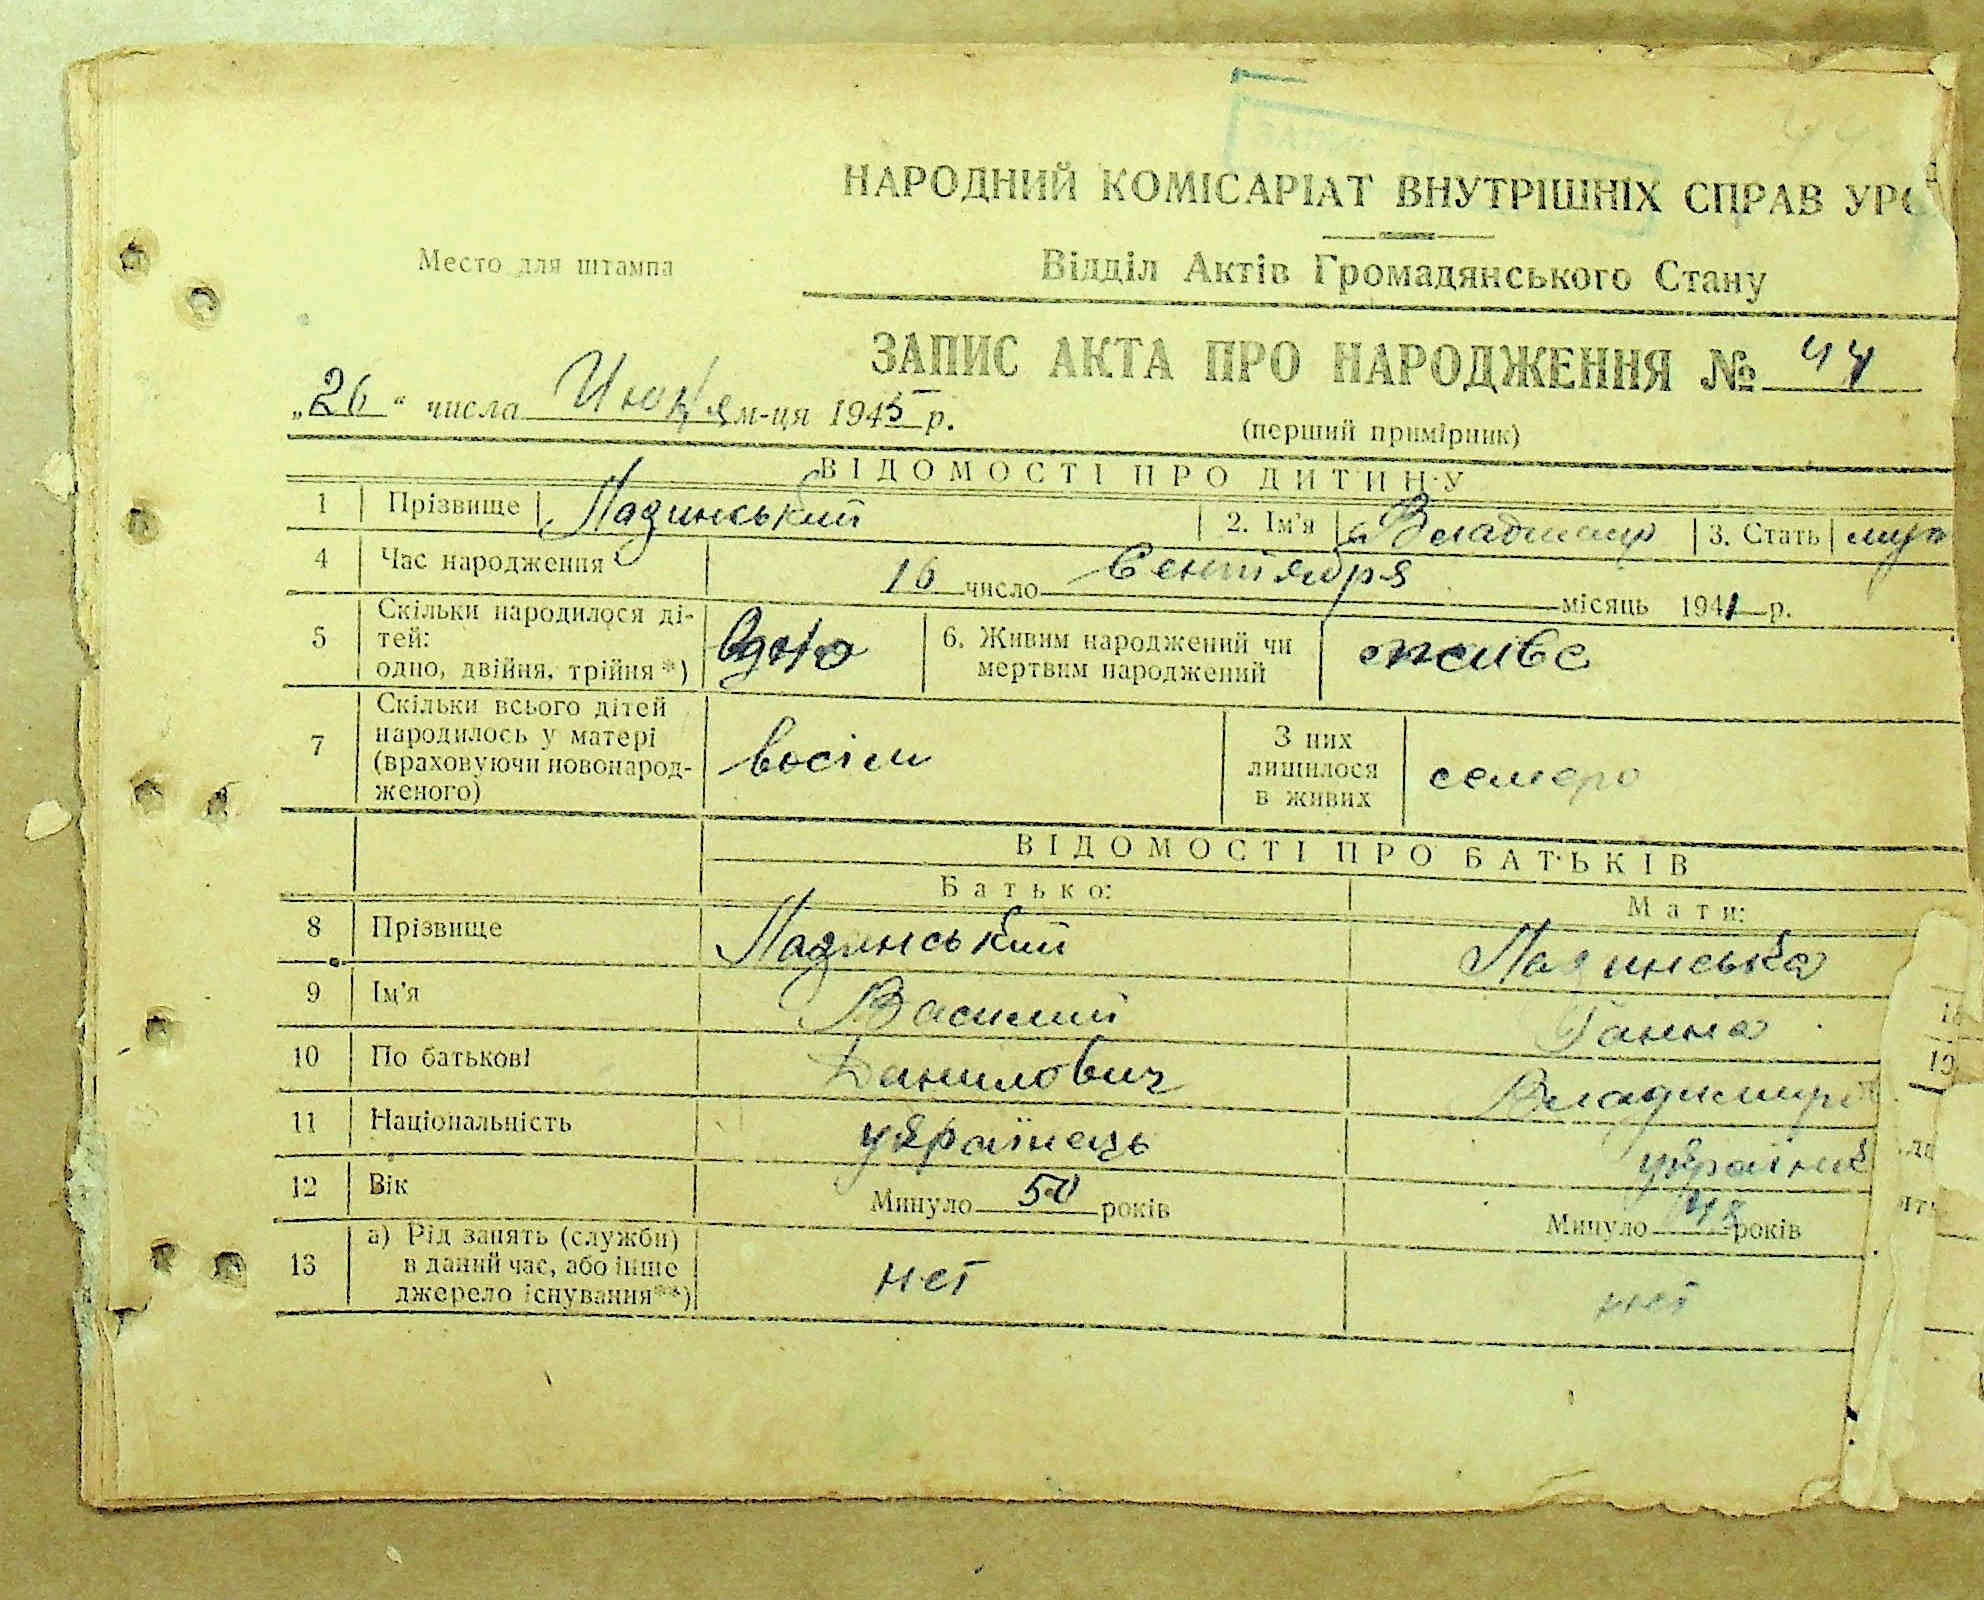 НАРОДНИЙ КОМІСАРІАТ ВНУТРІШНІХ СПРАВ УРС
Место для штампа
Відділ Актів Громадянського Стану
ЗАПИС АКТА ПРО НАРОДЖЕННЯ № 44
„26“ числа м-ця 1945 р.
(перший примірник)
ВІДОМОСТІ ПРО ДИТИНУ
1 Прізвище Ладинський 2. Ім'я Владимир 3. Стать муж
4 Час народження 16 число Сентября місяць 1941 р.
5 Скільки народилося ді-
тей:
одно, двійня, трійня*) Одно 6. Живим народжений чи
мертвим народжений живе
7 Скільки всього дітей
народилось у матері
(враховуючи новонарод-
женого) восім З них
лишилося
в живих семеро
ВІДОМОСТІ ПРО БАТЬКІВ
Батько: Мати:
8 Прізвище Ладинський Ладинська
9 Ім'я Василий Ганна
10 По батькові Данилович Владимиро
11 Національність українець україн
12 Вік Минуло 50 років Минуло 48 років
13 а) Рід занять (служби)
в даний час, або інше
джерело існування**) нет нет